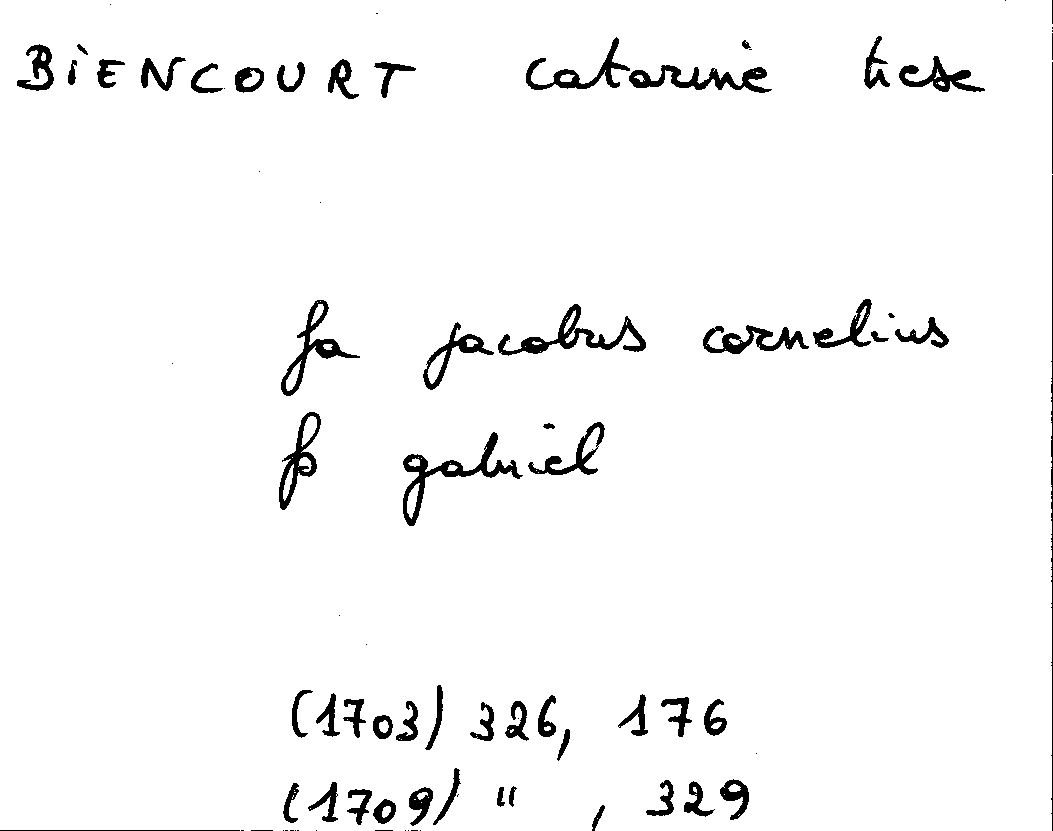 BiENCOURT catarine trese
fa jacobus cornelius
fs gabriel
(1703) 326, 176
(1709) " , 329